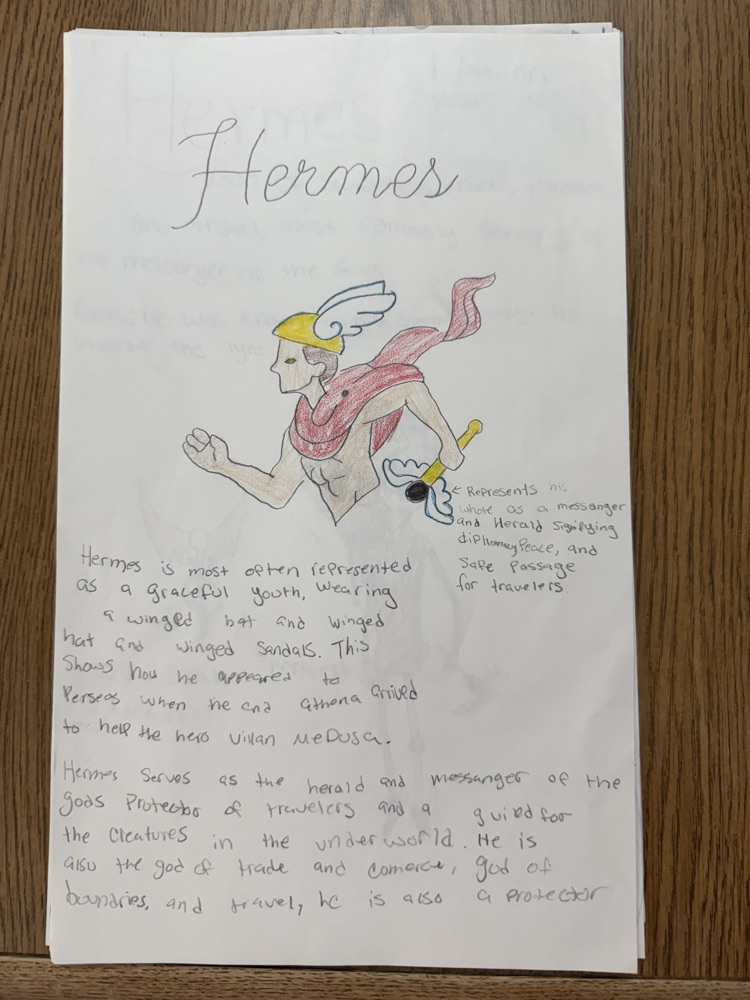 Hermes
← Represents his
whole as a messanger
and Herald Signifying
diplhomey Peace, and
Safe Passage
for travelers.
Hermes is most often represented
as a graceful youth, wearing
a winged bat and winged
hat and winged Sandals. This
Shows how he appeared to
Perseos when he and athena arrived
to help the hero villan MeDusa.
Hermes Serves as the herald and messanger of the
gods Protector of travelers and a guied for
the creatures in the underworld. He is
also the god of trade and comerce, god of
boundries, and travel, he is also a protector